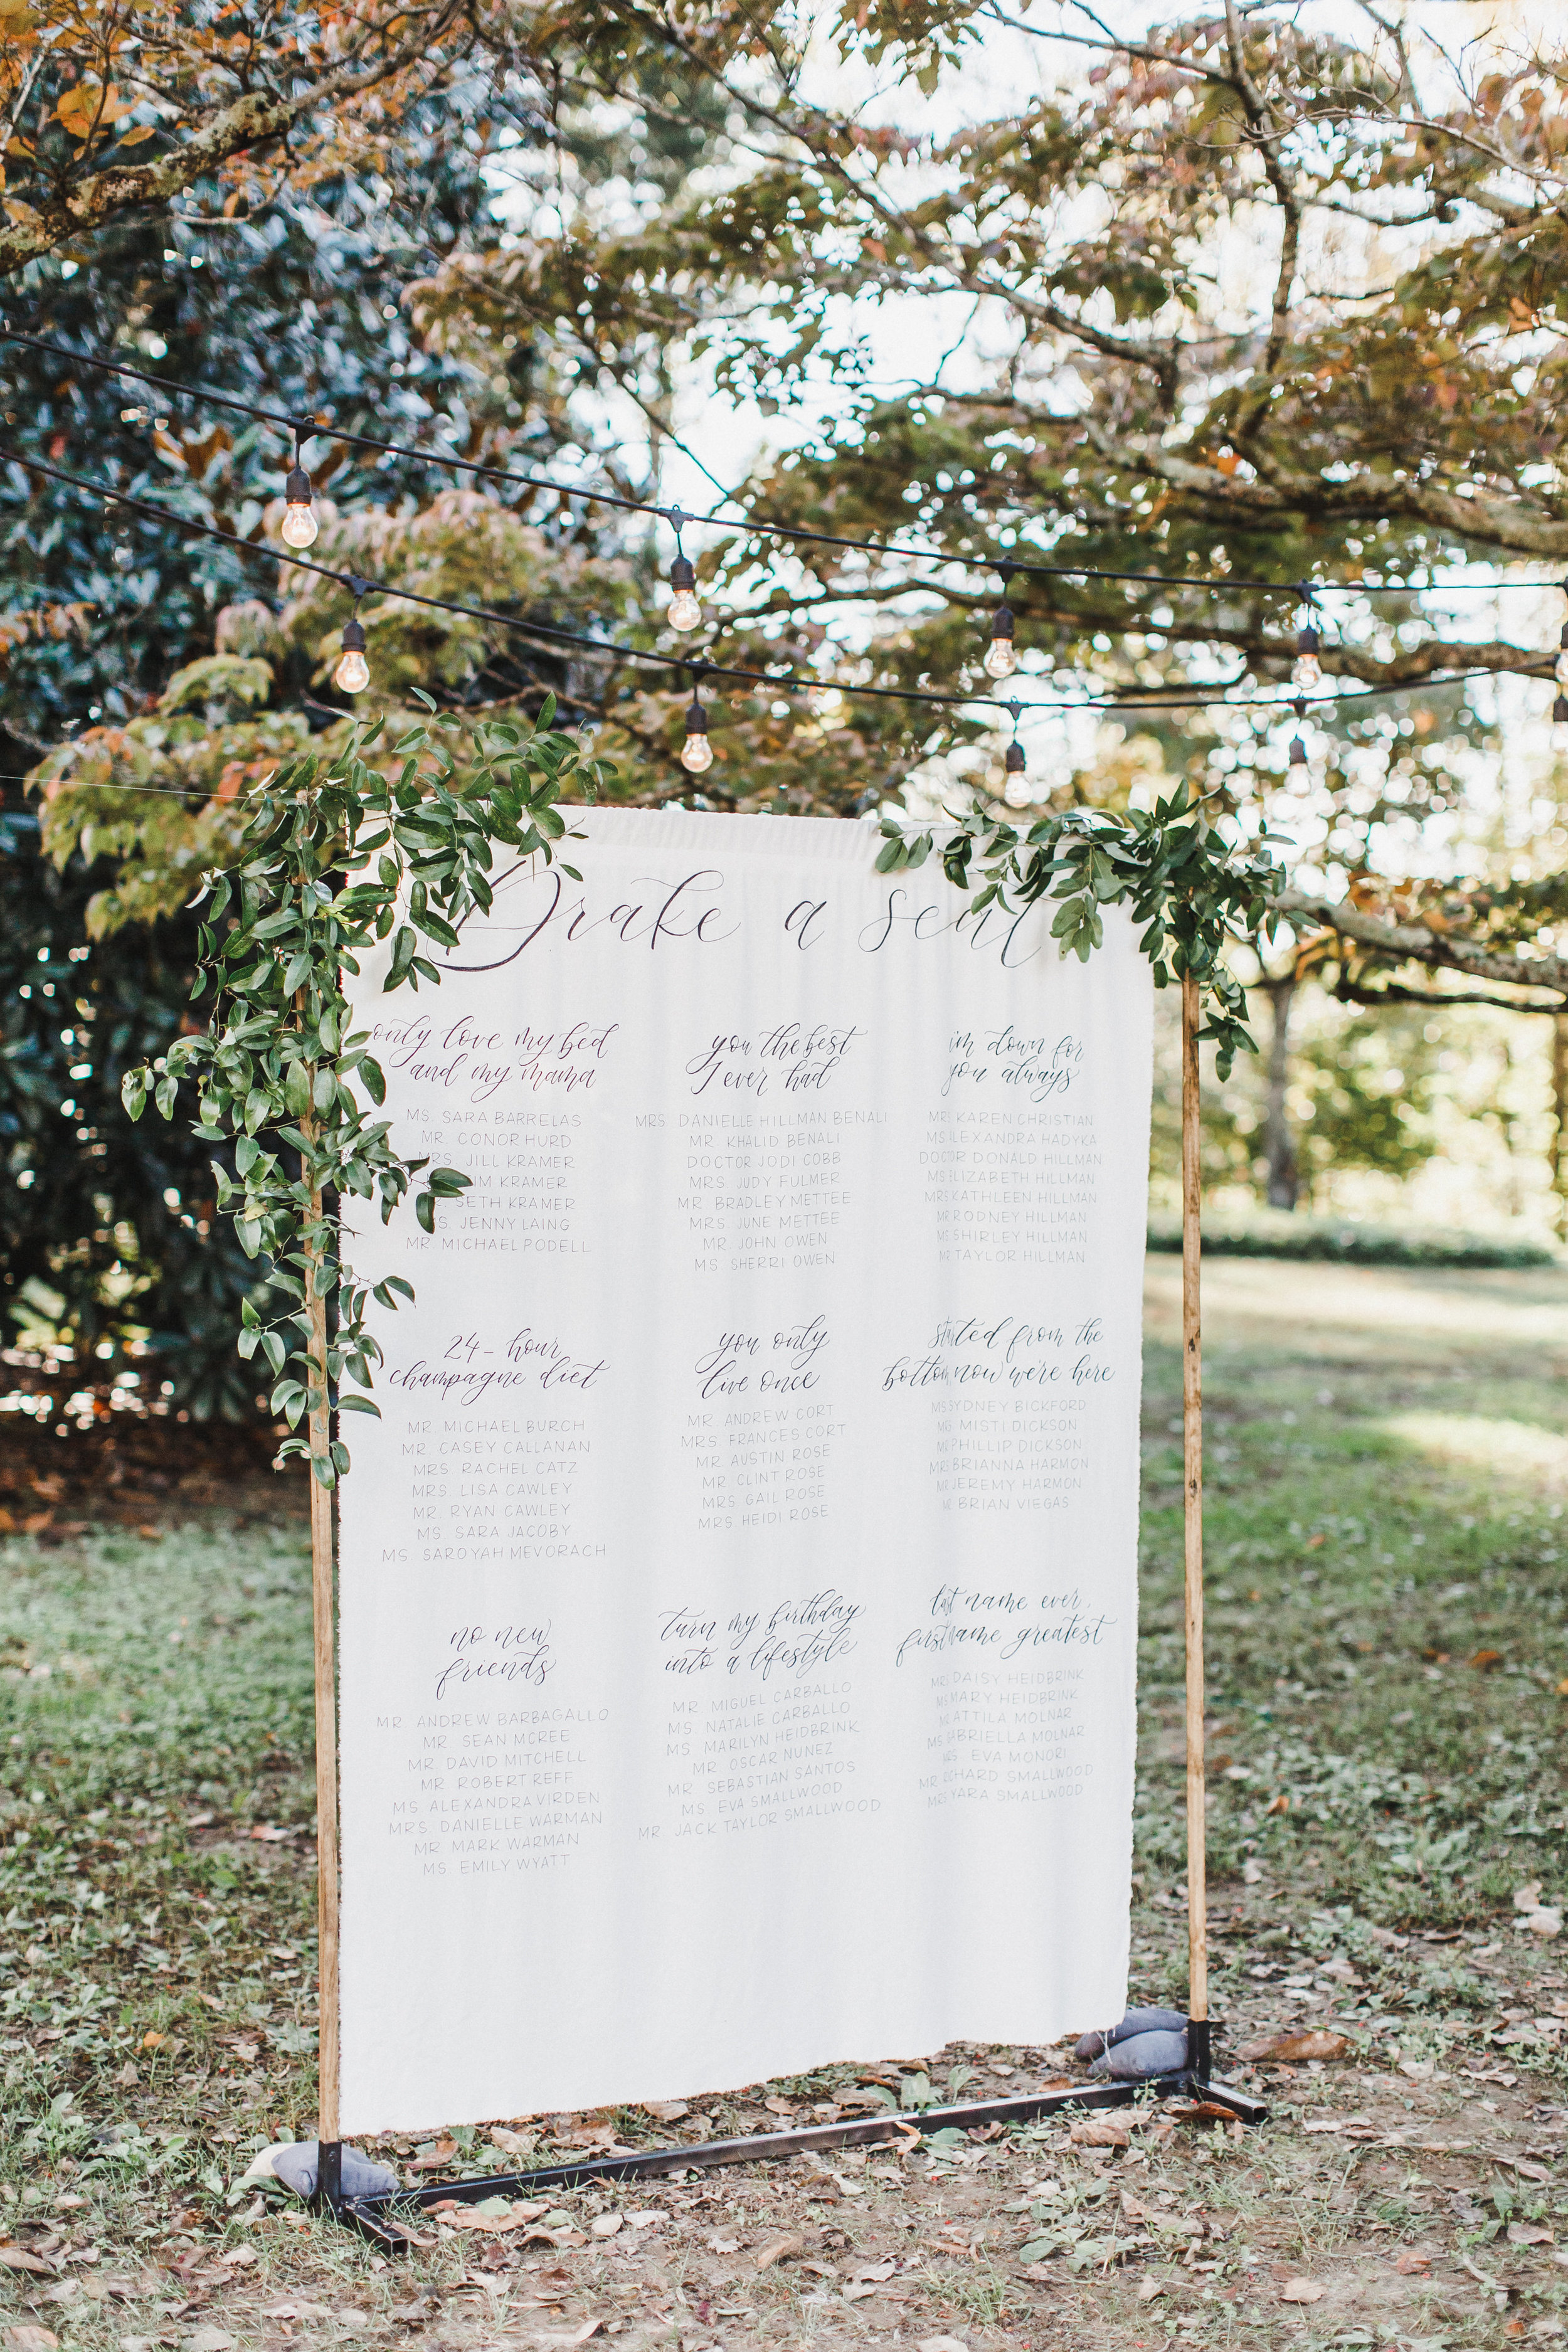 Drake a seat
only love my bed
and my mama
MS. SARA BARRELAS
MR. CONOR HURD
MRS. JILL KRAMER
KRAMER
SETH KRAMER
JENNY LAING
MR. MICHAEL PODELL
you the best
I ever had
MRS. DANIELLE HILLMAN BENALI
MR. KHALID BENALI
DOCTOR JODI COBB
MRS. JUDY FULMER
MR. BRADLEY METTEE
MRS. JUNE METTEE
MR. JOHN OWEN
MS. SHERRI OWEN
i'm down for
you always
MRS. KAREN CHRISTIAN
MS. ALEXANDRA HADYKA
DOCTOR DONALD HILLMAN
MS. ELIZABETH HILLMAN
MRS. KATHLEEN HILLMAN
MR. RODNEY HILLMAN
MS. SHIRLEY HILLMAN
MR. TAYLOR HILLMAN
24-hour
champagne diet
MR. MICHAEL BURCH
MR. CASEY CALLANAN
MRS. RACHEL CATZ
MRS. LISA CAWLEY
MR. RYAN CAWLEY
MS. SARA JACOBY
MS. SAROYAH MEVORACH
you only
live once
MR. ANDREW CORT
MRS. FRANCES CORT
MR. AUSTIN ROSE
MR. CLINT ROSE
MRS. GAIL ROSE
MRS. HEIDI ROSE
started from the
bottom now we're here
MS. SYDNEY BICKFORD
MISTI DICKSON
MR. PHILLIP DICKSON
MRS. BRIANNA HARMON
MR. JEREMY HARMON
MR. BRIAN VIEGAS
no new
friends
MR. ANDREW BARBAGALLO
MR. SEAN MCREE
MR. DAVID MITCHELL
MR. ROBERT REFF
MS. ALEXANDRA VIRDEN
MRS. DANIELLE WARMAN
MR. MARK WARMAN
MS. EMILY WYATT
turn my birthday
into a lifestyle
MR. MIGUEL CARBALLO
MS. NATALIE CARBALLO
MS. MARILYN HEIDBRINK
MR. OSCAR NUNEZ
MR. SEBASTIAN SANTOS
MS. EVA SMALLWOOD
MR. JACK TAYLOR SMALLWOOD
last name ever,
first name greatest
MRS. DAISY HEIDBRINK
MS. MARY HEIDBRINK
ATTILA MOLNAR
MS. GABRIELLA MOLNAR
EVA MONORI
MR. RICHARD SMALLWOOD
MRS. YARA SMALLWOOD